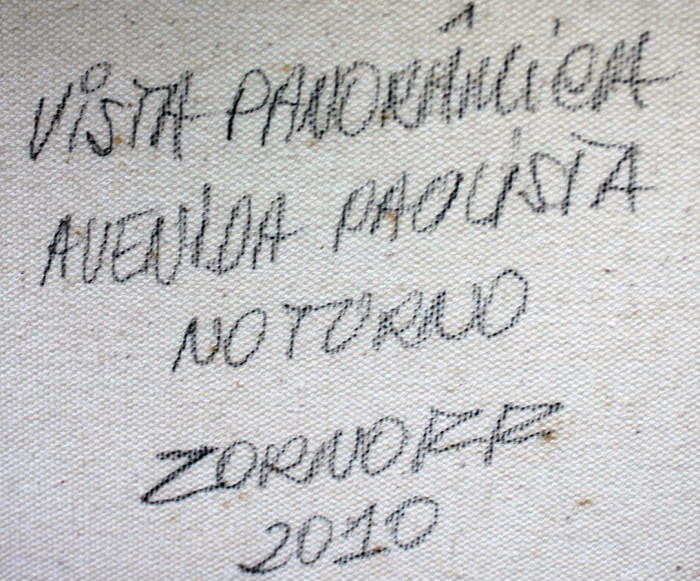 VISTA PANORÂMICA
AVENIDA PAULISTA
NOTURNO
ZORNOFF
2010